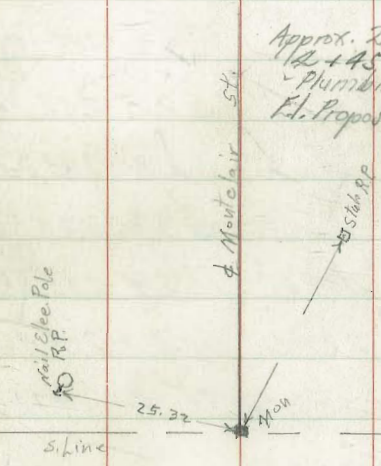 Approx.
12 + 45
- Plumb
El. Propos
℄ Montclair St.
Stake RP
Nail Elec. Pole
R.P.
25.32
Mon
S. Line